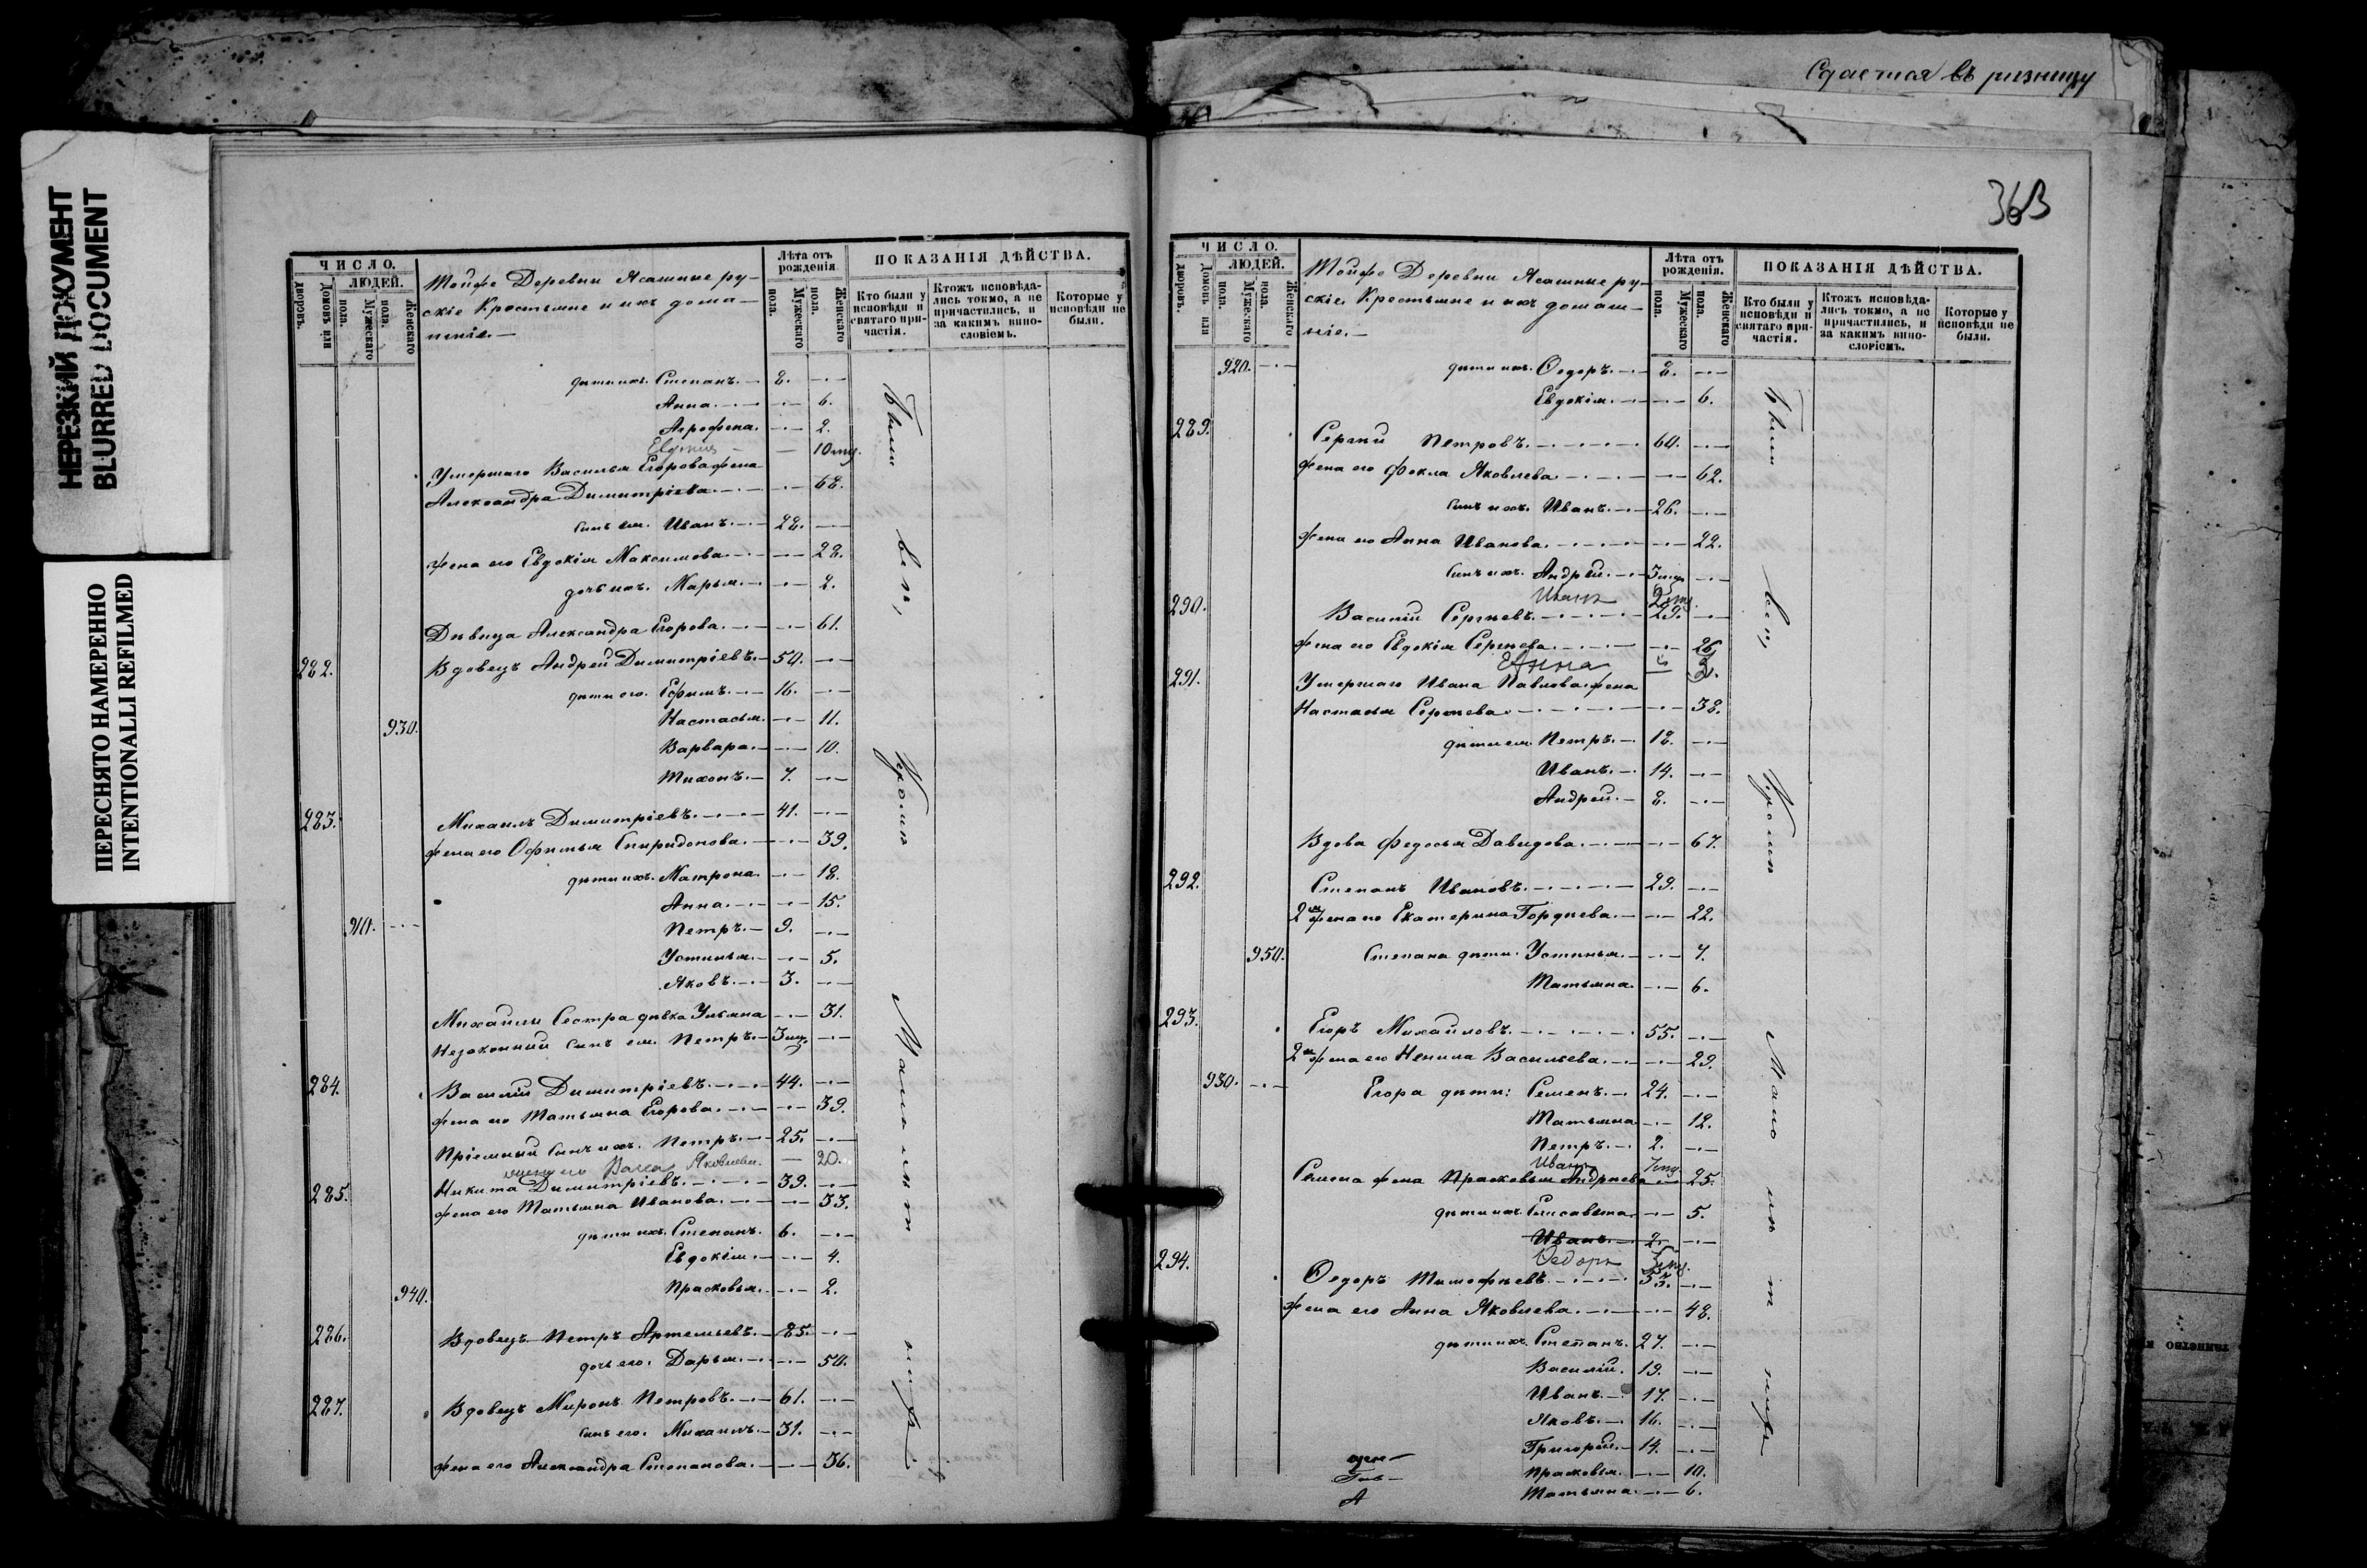 Сдается въ ризницу
363
НЕРЕЗКИЙ ДОКУМЕНТ
BLURRED DOCUMENT
ПЕРЕСНЯТО НАМЕРЕННО
INTENTIONALLI REFILMED
ЧИСЛО.
ЛЮДЕЙ.
Домовъ или дворовъ.
Мужескаго пола.
Женскаго пола.
Тойже Деревни Ясашные ру-
скіе Крестьяне и ихъ дома-
шніе.
Лѣта отъ рожденія
Мужескаго пола.
Женскаго пола.
ПОКАЗАНІЯ ДѢЙСТВА.
Кто были у исповѣди и святаго причастія.
Ктожъ исповѣдались токмо, а не причастились, и за какимъ винословіемъ.
Которые у исповѣди не были.
дѣти ихъ. Степанъ. 8.
Анна. 6.
Агрофена. 2.
10 мц.
Умершаго Василья Егорова жена
Александра Димитріева. 68.
сынъ ея. Иванъ. 28.
жена его Евдокія Максимова. 28.
дочь ихъ. Марья. 2.
Дѣвица Александра Егорова. 61.
282. Вдовецъ Андрей Димитріевъ. 50.
дѣти его. Ефимъ. 16.
930. Настасья. 11.
Варвара. 10.
Тихонъ. 7.
283. Михаилъ Димитріевъ. 41.
жена его Офимья Спиридонова. 39.
дѣти ихъ. Матрона. 18.
Анна. 15.
910. Петръ. 9.
Устинья. 5.
Яковъ. 3.
Михайлы Сестра дѣвка Ульяна 31.
Незаконный сынъ ея. Петръ. 3 мц.
284. Василій Димитріевъ. 44.
жена его Татьяна Егорова. 39.
Пріемный сынъ ихъ. Петръ. 25.
Яковлева. 20.
285. Никита Димитріевъ. 39.
жена его Татьяна Иванова. 33.
дѣти ихъ. Степанъ. 6.
Евдокія. 4.
940. Прасковья. 2.
286. Вдовецъ Петръ Артемьевъ. 85.
дочь его. Дарья. 50.
287. Вдовецъ Миронъ Петровъ. 61.
сынъ его. Михаилъ. 31.
жена его Александра Степанова. 36.
Были всѣ, Кромѣ Малолѣт
ЧИСЛО.
ЛЮДЕЙ.
Домовъ или дворовъ.
Мужескаго пола.
Женскаго пола.
Тойже Деревни Ясашные ру-
скіе Крестьяне и ихъ домаш-
ніе.
Лѣта отъ рожденія.
Мужескаго пола.
Женскаго пола.
ПОКАЗАНІЯ ДѢЙСТВА.
Кто были у исповѣди и святаго причастія.
Ктожъ исповѣдались токмо, а не причастились, и за какимъ винословіемъ.
Которые у исповѣди не были.
920. дѣти ихъ. Ѳедоръ. 8.
Евдокія. 6.
289. Сергѣй Петровъ. 60.
жена его Фекла Яковлева. 62.
сынъ ихъ. Иванъ. 26.
жена его Анна Иванова. 22.
сынъ ихъ. Андрей. 3 мц.
Иванъ 2 мц.
290. Василій Сергѣевъ. 29.
жена его Евдокія Сергѣева. 26.
Анна
291. Умершаго Ивана Павлова жена
Настасья Сергѣева. 38.
дѣти ея. Петръ. 18.
Иванъ. 14.
Андрей. 8.
Вдова Федосья Давыдова. 67.
292. Степанъ Ивановъ. 29.
2я жена его Екатерина Гордѣева. 22.
950. Степана дѣти. Устинья. 7.
Татьяна. 6.
293. Егоръ Михайловъ. 55.
2я жена его Ненила Васильева. 29.
930. Егора дѣти: Семенъ. 24.
Татьяна 12.
Петръ. 2.
Иванъ
Семена жена Прасковья Андреева 25.
дѣти ихъ. Елисавета. 5.
Иванъ. 2.
Ѳедоръ
294. Ѳедоръ Тимофѣевъ. 53.
жена его Анна Яковлева. 48.
дѣти ихъ. Степанъ. 27.
Василій. 19.
Иванъ. 17.
Яковъ. 16.
Григорій. 14.
Прасковья. 10.
Татьяна. 6.
Были всѣ, Кромѣ Мало лѣт